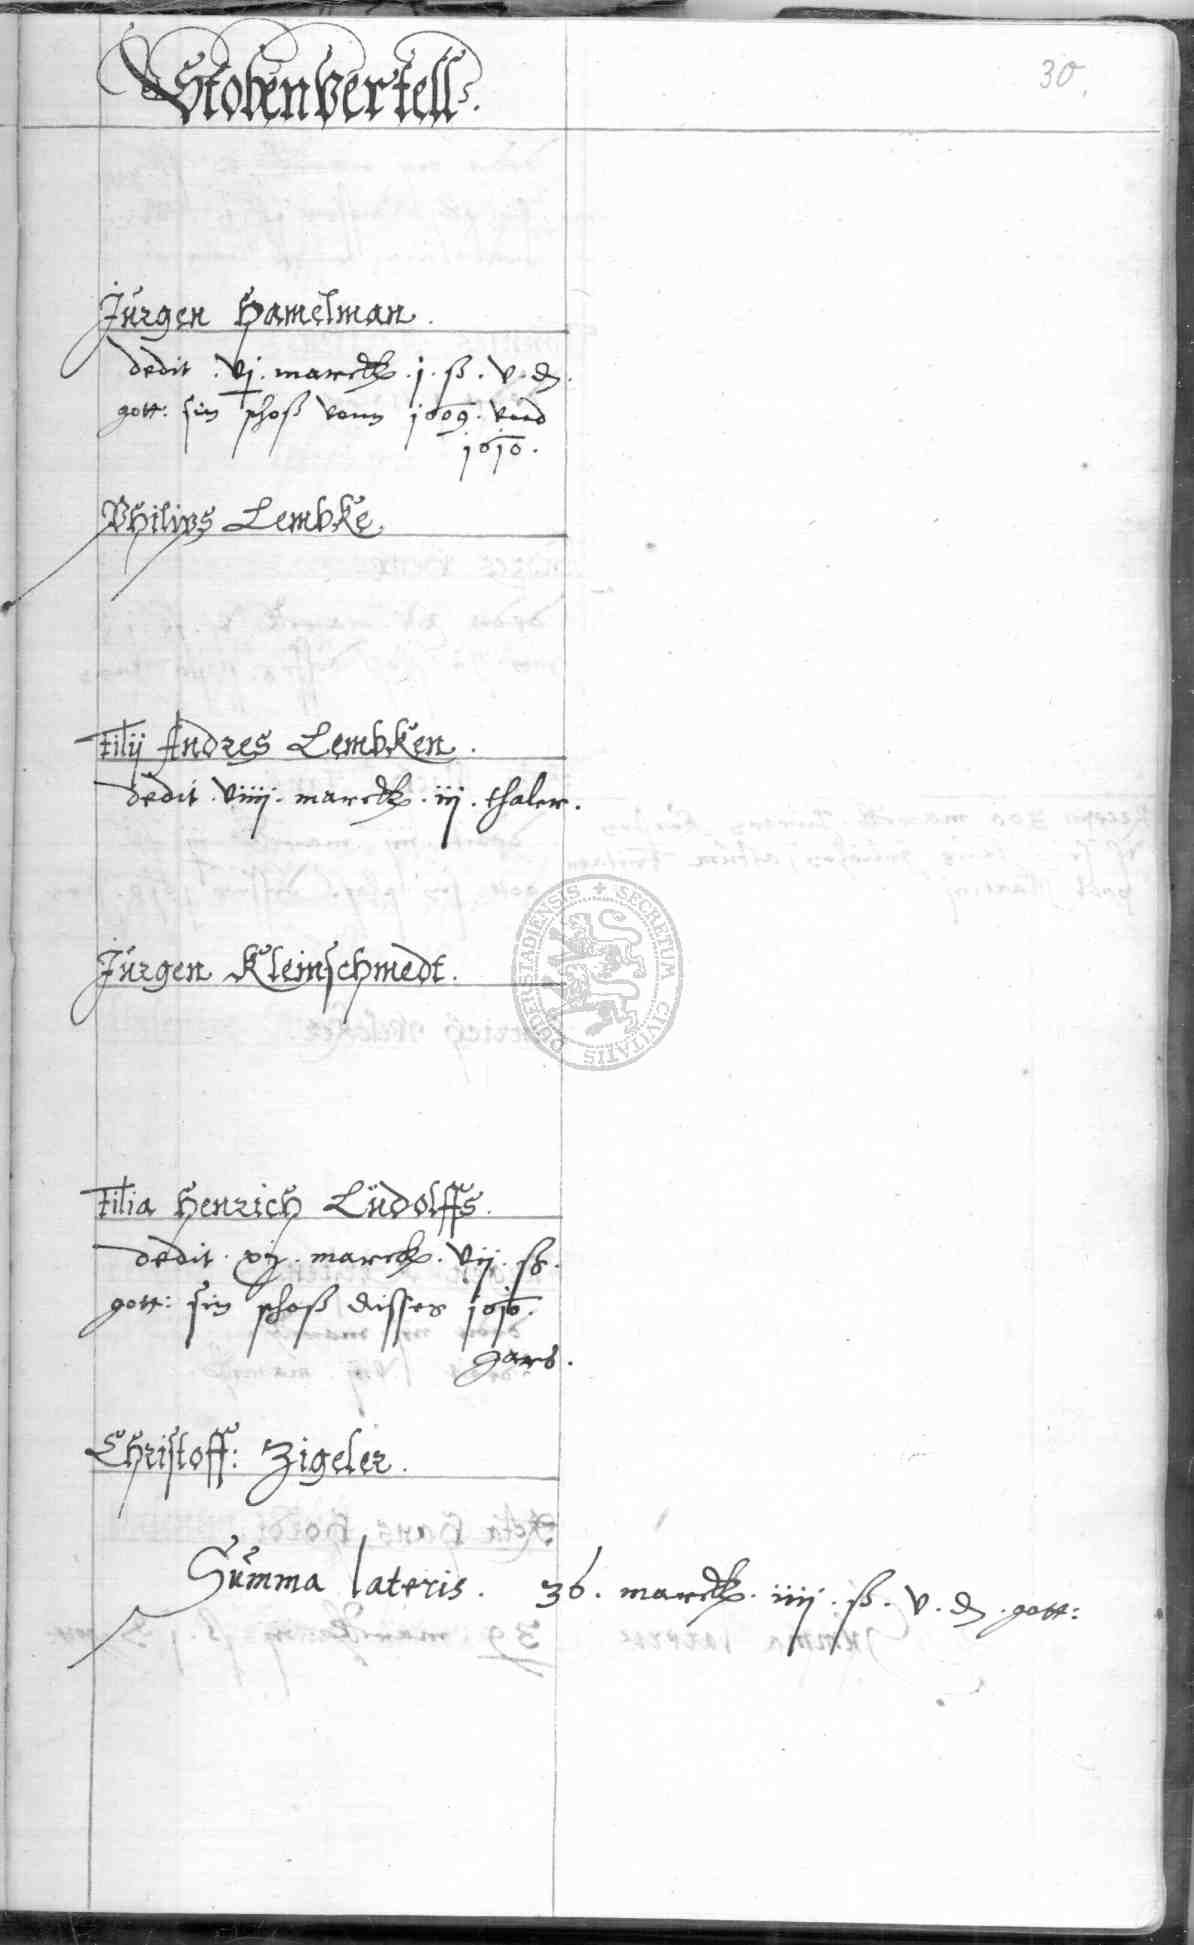 Stobenvertell.
30.
Jürgen Hamelman.
dedit . vj . marck . j . ß . v . ₰.
gott: sin schoß vonn 1609. vnd
1610.
Philips Lembke.
Filij Andres Lembken.
dedit . viiij . marck . iij . thaler.
SECRETUM CIVITATIS DUDERSTADIENSIS
Jürgen Kleinschmedt.
Filia Henrich Lüdolffs.
dedit . xij . marck . vij . ß.
gott: sin schoß disses 1610.
Jars.
Christoff: Zigeler.
Summa lateris. 36. marck. iiij. ß. v. ₰. gott: